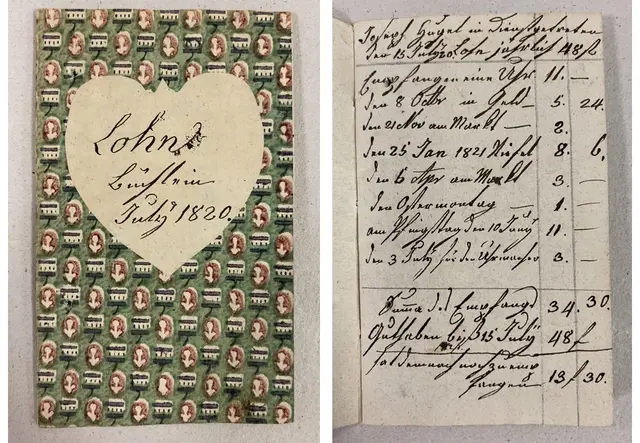 Lohn
Büchlein
July 1820.
Joseph Hugel in Dienst getreten
den 15 July 20. Lohn jährlich 48 f
Empfangen eine Uhr 11. —
den 8 Octbr in Geld — 5. 24.
den 21 Nov am Markt — 2.
den 25 Jan 1821 Stiefel 8. 6.
den 6 am Markt 3. —
den Ostermontag — 1. —
am Pfingsttag den 10 Juny 11. —
den 3 July für den Uhrmacher 3. —
Summa des Empfangs 34. 30.
Guthaben biß 15 July 48 f
hat demnach noch zu emp
fangen 13 f 30.